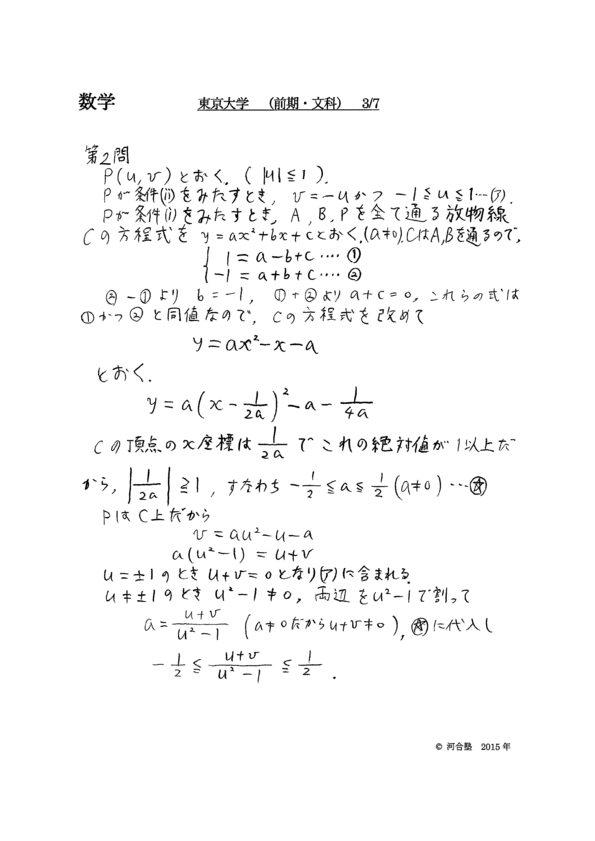 数学　東京大学　（前期・文科）　3/7
第2問
P(u, v) とおく. ( |u| ≦ 1 ).
Pが条件(ii)をみたすとき, v = -u かつ -1 ≦ u ≦ 1 … (ア).
Pが条件(i)をみたすとき, A, B, Pを全て通る放物線
Cの方程式を y = ax² + bx + c とおく. (a ≠ 0). CはA, Bを通るので,
1 = a - b + c …… ①
-1 = a + b + c …… ②
② - ① より b = -1, ① + ② より a + c = 0, これらの式は
① かつ ② と同値なので, Cの方程式を改めて
y = ax² - x - a
とおく.
y = a(x - 1/2a)² - a - 1/4a
Cの頂点のx座標は 1/2a で これの絶対値が1以上だ
から, |1/2a| ≧ 1, すなわち -1/2 ≦ a ≦ 1/2 (a ≠ 0) … ☆
PはC上だから
v = au² - u - a
a(u² - 1) = u + v
u = ±1 のとき u + v = 0 となり(ア)に含まれる.
u ≠ ±1 のとき u² - 1 ≠ 0, 両辺をu² - 1で割って
a = (u + v)/(u² - 1) (a ≠ 0だから u + v ≠ 0), ☆に代入し
-1/2 ≦ (u + v)/(u² - 1) ≦ 1/2 .
© 河合塾　2015年